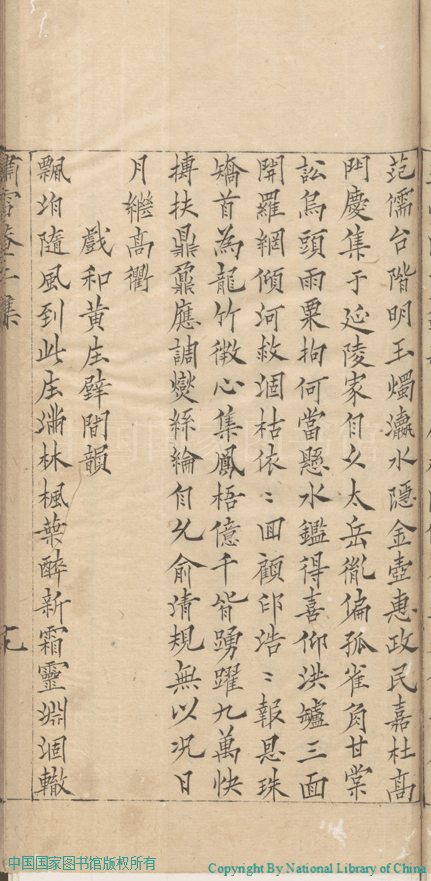 范儒台階明玉燭瀛水隱金壺惠政民嘉杜高
門慶集于延陵家自久太岳胤偏孤雀角甘棠
訟烏頭雨粟拘何當懸水鑑得喜仰洪鑪三面
開羅網傾河救涸枯依〻回顧印浩〻報恩珠
矯首為龍竹徵心集鳳梧億千皆踴躍九萬快
摶扶鼎鼐應調燮絲綸自允俞清規無以况日
月繼高衢
戲和黃庄壁間韻
飄泊隨風到此庄滿林楓葉醉新霜靈淵涸轍
中国国家图书馆版权所有
Copyright By National Library of China